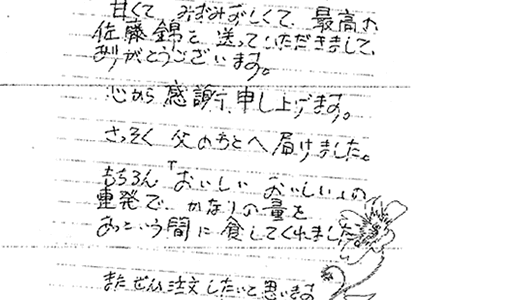 甘くて みずみずしくて 最高の
佐藤錦を 送っていただきまして、
ありがとうございます。
心から 感謝申し上げます。
さっそく 父のもとへ届けました。
もちろん「おいしい おいしい」の
連発で かなりの量を
あっという間に 食してくれました。
またぜひ注文したいと思います